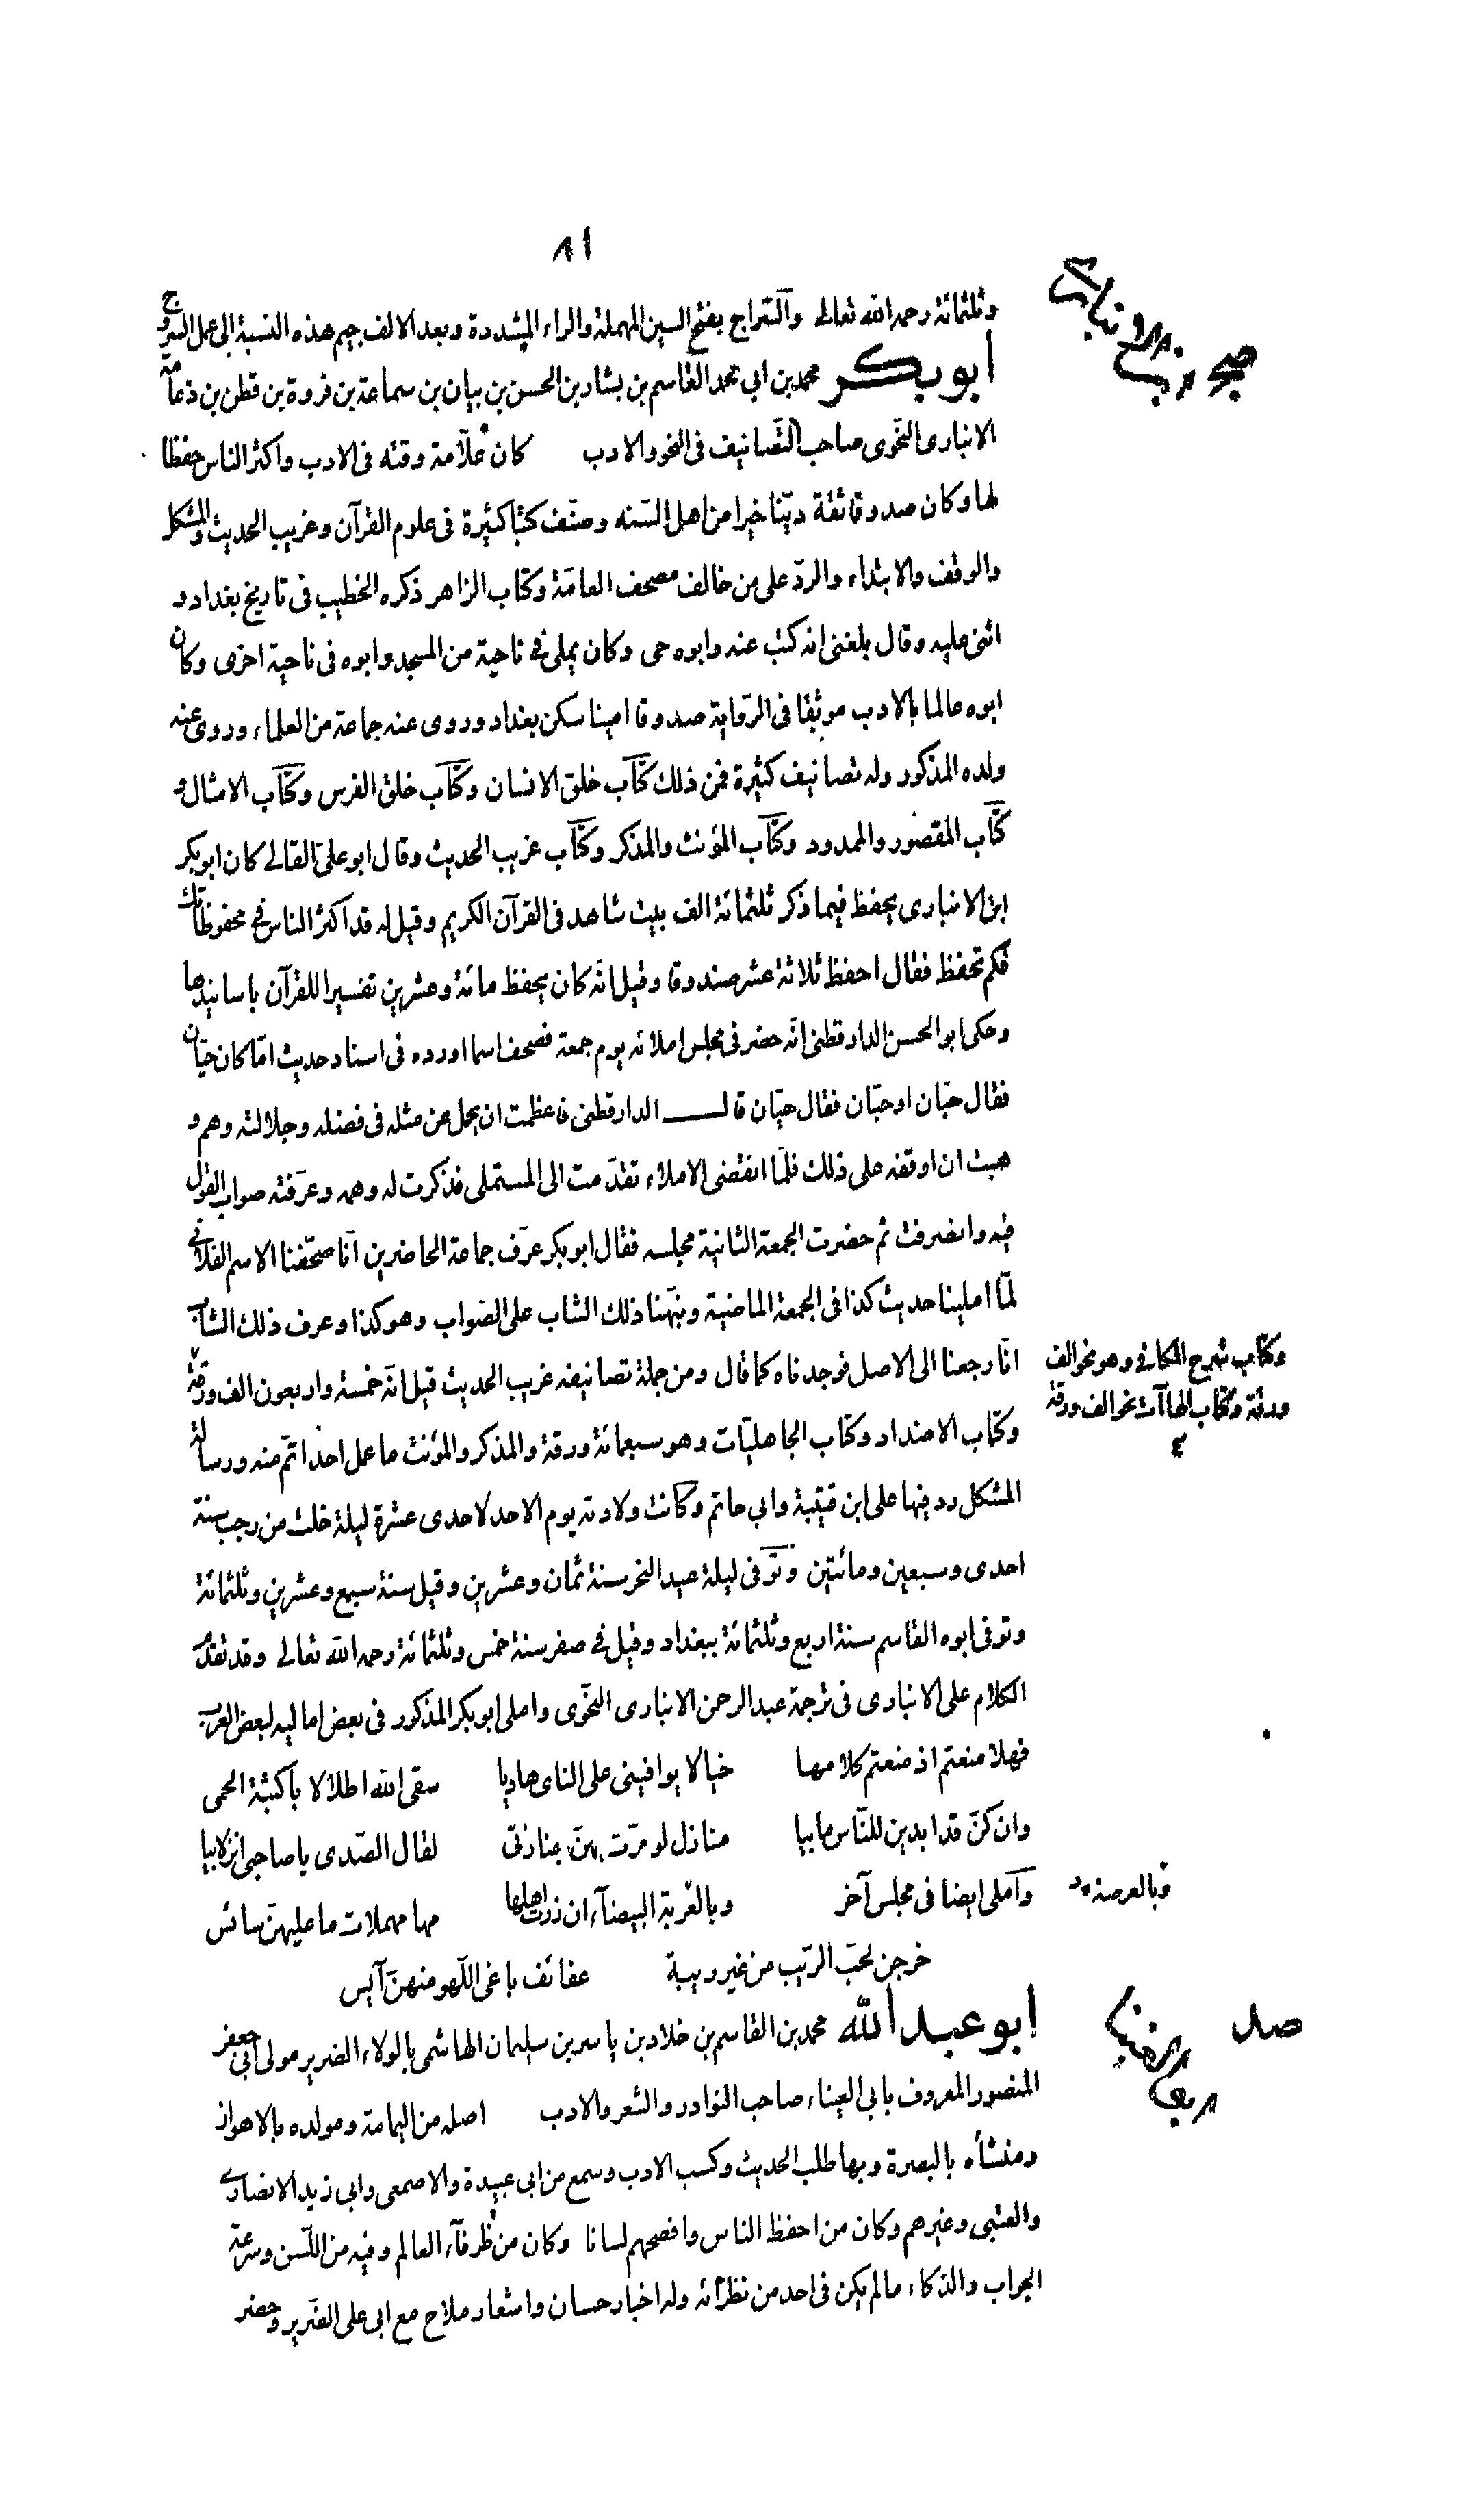 ٨١
وثلثمائة رحمه الله تعالى والسّراج بفتح السين المهملة والراء المشددة وبعد الالف جيم هذه النسبة الى عمل السروج
ابو بكر محمد بن ابي محمد القاسم بن بشار بن الحسن بن بيان بن سماعة بن فروة بن قطن بن دعامة
الانبارى النحوى صاحب التصانيف فى النحو والادب كان علّامة وقته فى الادب واكثر الناس حفظا
لها وكان صدوقا ثقة ديّنا خيرا من اهل السنه وصنّف كتبا كثيرة فى علوم القرآن وغريب الحديث والمشكل
والوقف والابتداء والردّ على من خالف مصحف العامّة وكتاب الزاهر ذكره الخطيب فى تاريخ بغداد و
اثنى عليه وقال بلغنى انه كتب عنه وابوه حى وكان يملى فى ناحية من المسجد وابوه فى ناحية اخرى وكان
ابوه عالما بالادب موثقا فى الرّواية صدوقا امينا سكن بغداد وروى عنه جماعة من العلماء وروى عنه
ولده المذكور وله تصانيف كثيرة فمن ذلك كتاب خلق الانسان وكتاب خلق الفرس وكتاب الامثال و
كتاب المقصور والممدود وكتاب المؤنث والمذكر وكتاب غريب الحديث وقال ابو علىّ القالى كان ابو بكر
ابن الانبارى يحفظ فيما ذكر ثلثمائة الف بيت شاهد فى القرآن الكريم وقيل له قد اكثر الناس فى محفوظاتك
فكم تحفظ فقال احفظ ثلاثة عشر صندوقا وقيل انّه كان يحفظ مائة وعشرين تفسيرا للقرآن باسانيدها
وحكى ابو الحسن الدارقطنى انّه حضر فى مجلس املائه يوم جمعة فصحف اسما اورده فى اسناد حديث امّا كان حيّان
فقال حبّان او حبّان فقال حيّان قال الدارقطنى فاعظمت ان يحمل عن مثله فى فضله وجلالته وهم و
هبت ان اوقفه على ذلك فلمّا انقضى الاملاء تقدّمت الى المستملى فذكرت له وهمه وعرّفته صواب القول
فيه وانصرفت ثم حضرت الجمعة الثانية مجلسه فقال ابو بكر عرّف جماعة الحاضرين انّا صحّفنا الاسم الفلانى
لمّا املينا حديث كذا فى الجمعة الماضية ونبّهنا ذلك الشاب على الصّواب وهو كذا وعرف ذلك الشاب
انّا رجعنا الى الاصل فوجدناه كما قال ومن جملة تصانيفه غريب الحديث قيل انّه خمسة واربعون الف ورقة
وكتاب شرح الكافى وهو نحو الف
ورقة وكتاب الهاآت نحو الف ورقة
وكتاب الاضداد وكتاب الجاهليّات وهو سبعمائة ورقة والمذكر والمؤنث ما عمل احد اتمّ منه ورسالة
المشكل رد فيها على ابن قتيبة وابي حاتم وكانت ولادته يوم الاحد لاحدى عشرة ليلة خلت من رجب سنة
احدى وسبعين ومائتين وتوّفى ليلة عيد النحر سنة ثمان وعشرين وقيل سنة سبع وعشرين وثلثمائة
وتوفى ابوه القاسم سنة اربع وثلثمائة ببغداد وقيل فى صفر سنة خمس وثلثمائة رحمه الله تعالى وقد تقدّم
الكلام على الانبارى فى ترجمة عبد الرحمن الانبارى النحّوى واملى ابو بكر المذكور فى بعض اماليه لبعض العرب
فهلا منعتم اذ منعتم كلامها خيالا يوافينى على الناى هاديا سقى الله اطلالا باكثبة الحمى
وان كنّ قد ابدين للنّاس مابيا منازل لو مرّت بهنّ جنازتى لقال الصّدى يا صاحبى انزلابيا
واملى ايضا فى مجلس آخر وبالغربة البيضآء ان زرت اهلها مها مهملات ما عليهنّ سائس
وبالعرصة
خرجن لحبّ الرّيب من غير ريبة عفائف باغى اللّهو منهنّ آيس
ابو عبد الله محمد بن القاسم بن خلاد بن ياسر بن سليمان الهاشمى بالولاء الضرير مولى ابى جعفر
صد
المنصور المعروف بابي العيناء صاحب النوادر والشعر والادب اصله من اليمامة ومولده بالاهواز
ومنشأه بالبصرة وبها طلب الحديث وكسب الادب وسمع من ابى عبيدة والاصمعى وابى زيد الانصارى
والعتبى وغيرهم وكان من احفظ الناس وافصحهم لسانا وكان من ظرفآء العالم وفيه من اللّسن وسرعة
الجواب والذكاء ما لم يكن فى احد من نظرائه وله اخبار حسان واشعار ملاح مع ابى على الضّرير وحضر